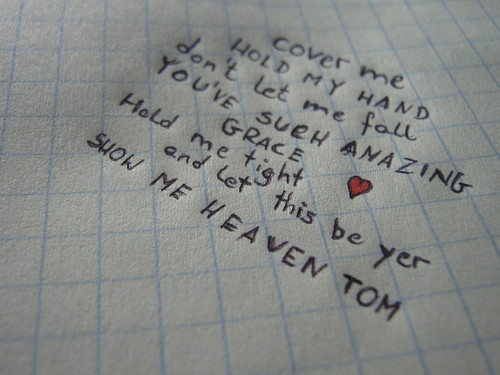 cover me
HOLD MY HAND
don't let me fall
YOU'VE SUCH AMAZING
GRACE
Hold me tight
and let this be yer
SHOW ME HEAVEN TOM